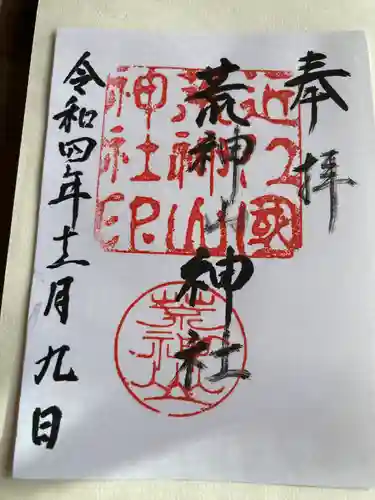 奉拝
荒神山神社
令和四年十二月九日
近江國
荒神山
神社印
荒神山